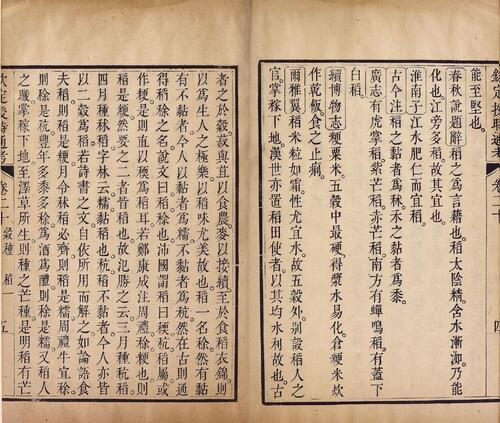 欽定授時通考 卷二十 四
能至堅也。
春秋說題辭稻之為言藉也。稻太陰精。含水漸洳。乃能
化也。江旁多稻。故其宜也。
淮南子江水肥仁而宜稻。
古今注稻之黏者為秫。禾之黏者為黍。
廣志有虎掌稻。紫芒稻。赤芒稻。南方有蟬鳴稻。有蓋下
白稻。
續博物志粳粟米。五穀中最硬。得漿水易化。倉粳米炊
作乾飯食之止痢。
爾雅翼稻米粒如霜。性尤宜水。故五穀外別設稻人之
官。掌稼下地。漢世亦置稻田使者。以其均水利故也。古
者之於穀。菽與苴以食農。麥以接續。至於食稻衣錦。則
以為生人之極樂。以稻味尤美故也。稻一名稌。然有黏
有不黏者。今人以黏者為糯。不黏者為秔。然在古則通
得稻之名。說文曰。稻稌也。沛國謂稻曰稬。秔稻屬。或
作粳。是則直以稬為稻耳。若鄭康成注周禮。稌粳也。則
稻是粳。然要之二者皆稻也。故氾勝之云。三月種秔稻。
四月種秫稻。字林云。糯黏稻也。秔稻不黏者。今人亦皆
以二穀為稻。若詩書之文。自依所用而解之。如論語食
夫稻。則稻是粳。月令秫稻必齊。則稻是糯。周禮牛宜稌。
則稌是秔。豐年多黍多稌。為酒為醴。則稌是糯。又稻人
之職。掌稼下地。至澤草所生。則種之芒種。是明稻有芒
欽定授時通考 卷二十 穀種 稻一 五